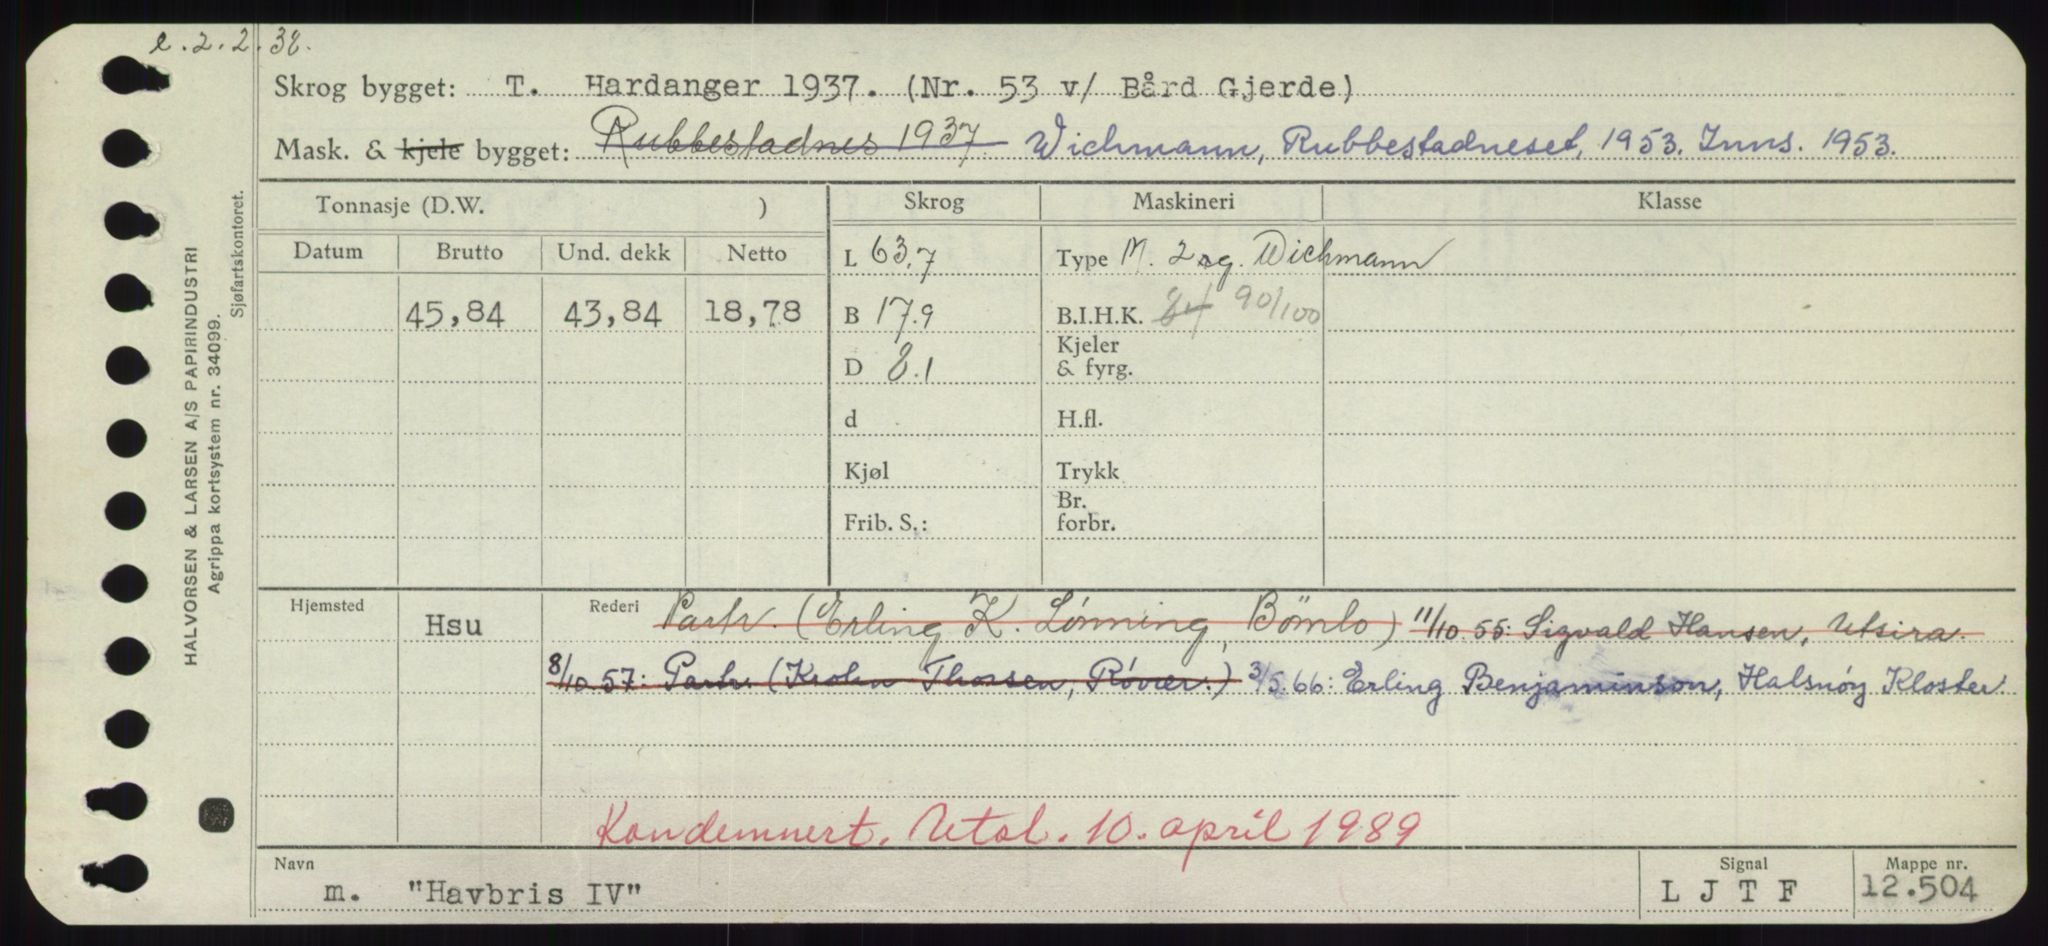 e. 2.2.38.
Skrog bygget: T. Hardanger 1937. (Nr. 53 v/ Bård Gjerde)
Mask. & kjele bygget: Rubbestadnes 1937 Wichmann, Rubbestadneset, 1953. Inns. 1953.
Tonnasje (D.W. ) Skrog Maskineri Klasse
Datum Brutto Und. dekk Netto L 63,7 Type M. 2 sg. Wichmann
45,84 43,84 18,78 B 17.9 B.I.H.K. 84 90/100
D 8.1 Kjeler & fyrg.
d H.fl.
Kjøl Trykk
Frib. S.: Br. forbr.
Hjemsted Hsu Rederi Partr. (Erling K. Lønning, Bömlo) 11/10 55: Sigvald Hansen, Utsira.
8/10.57: Partr. (Krohn Thorsen, Røvær.) 3/5.66: Erling Benjaminson, Halsnøy Kloster.
Kondemnert. Utsl. 10. april 1989
Navn Signal Mappe nr.
m. "Havbris IV" L J T F 12.504
HALVORSEN & LARSEN A/S PAPIRINDUSTRI
Agrippa kortsystem nr. 34099.
Sjøfartskontoret.